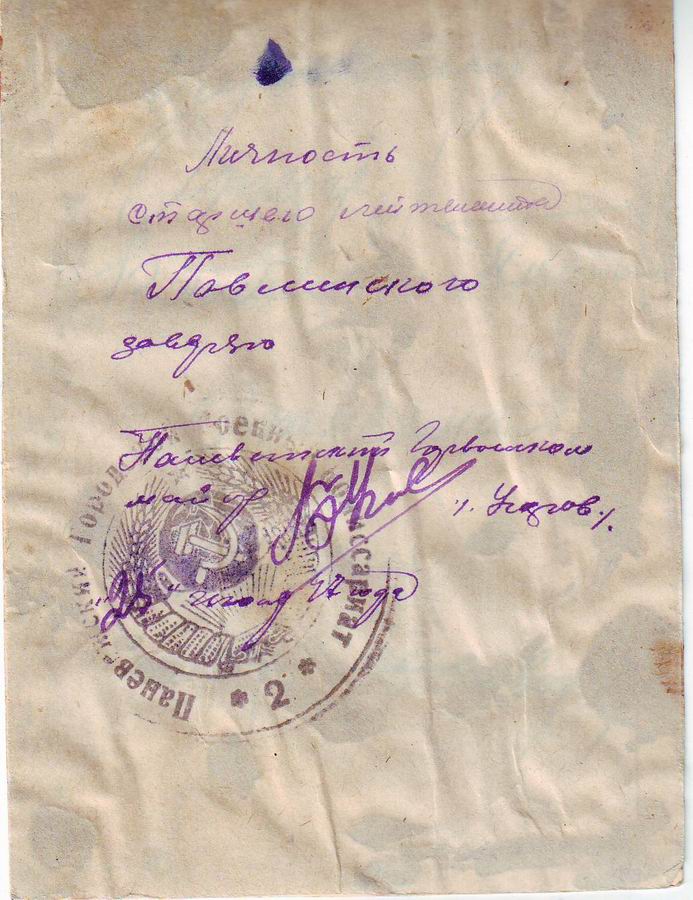 Личность
старшего лейтенанта
Павлинского
заверяю
Паневежский Горвоенком
майор
"25" 47 года
Паневежский Городской Военный Комиссариат
* 2 *